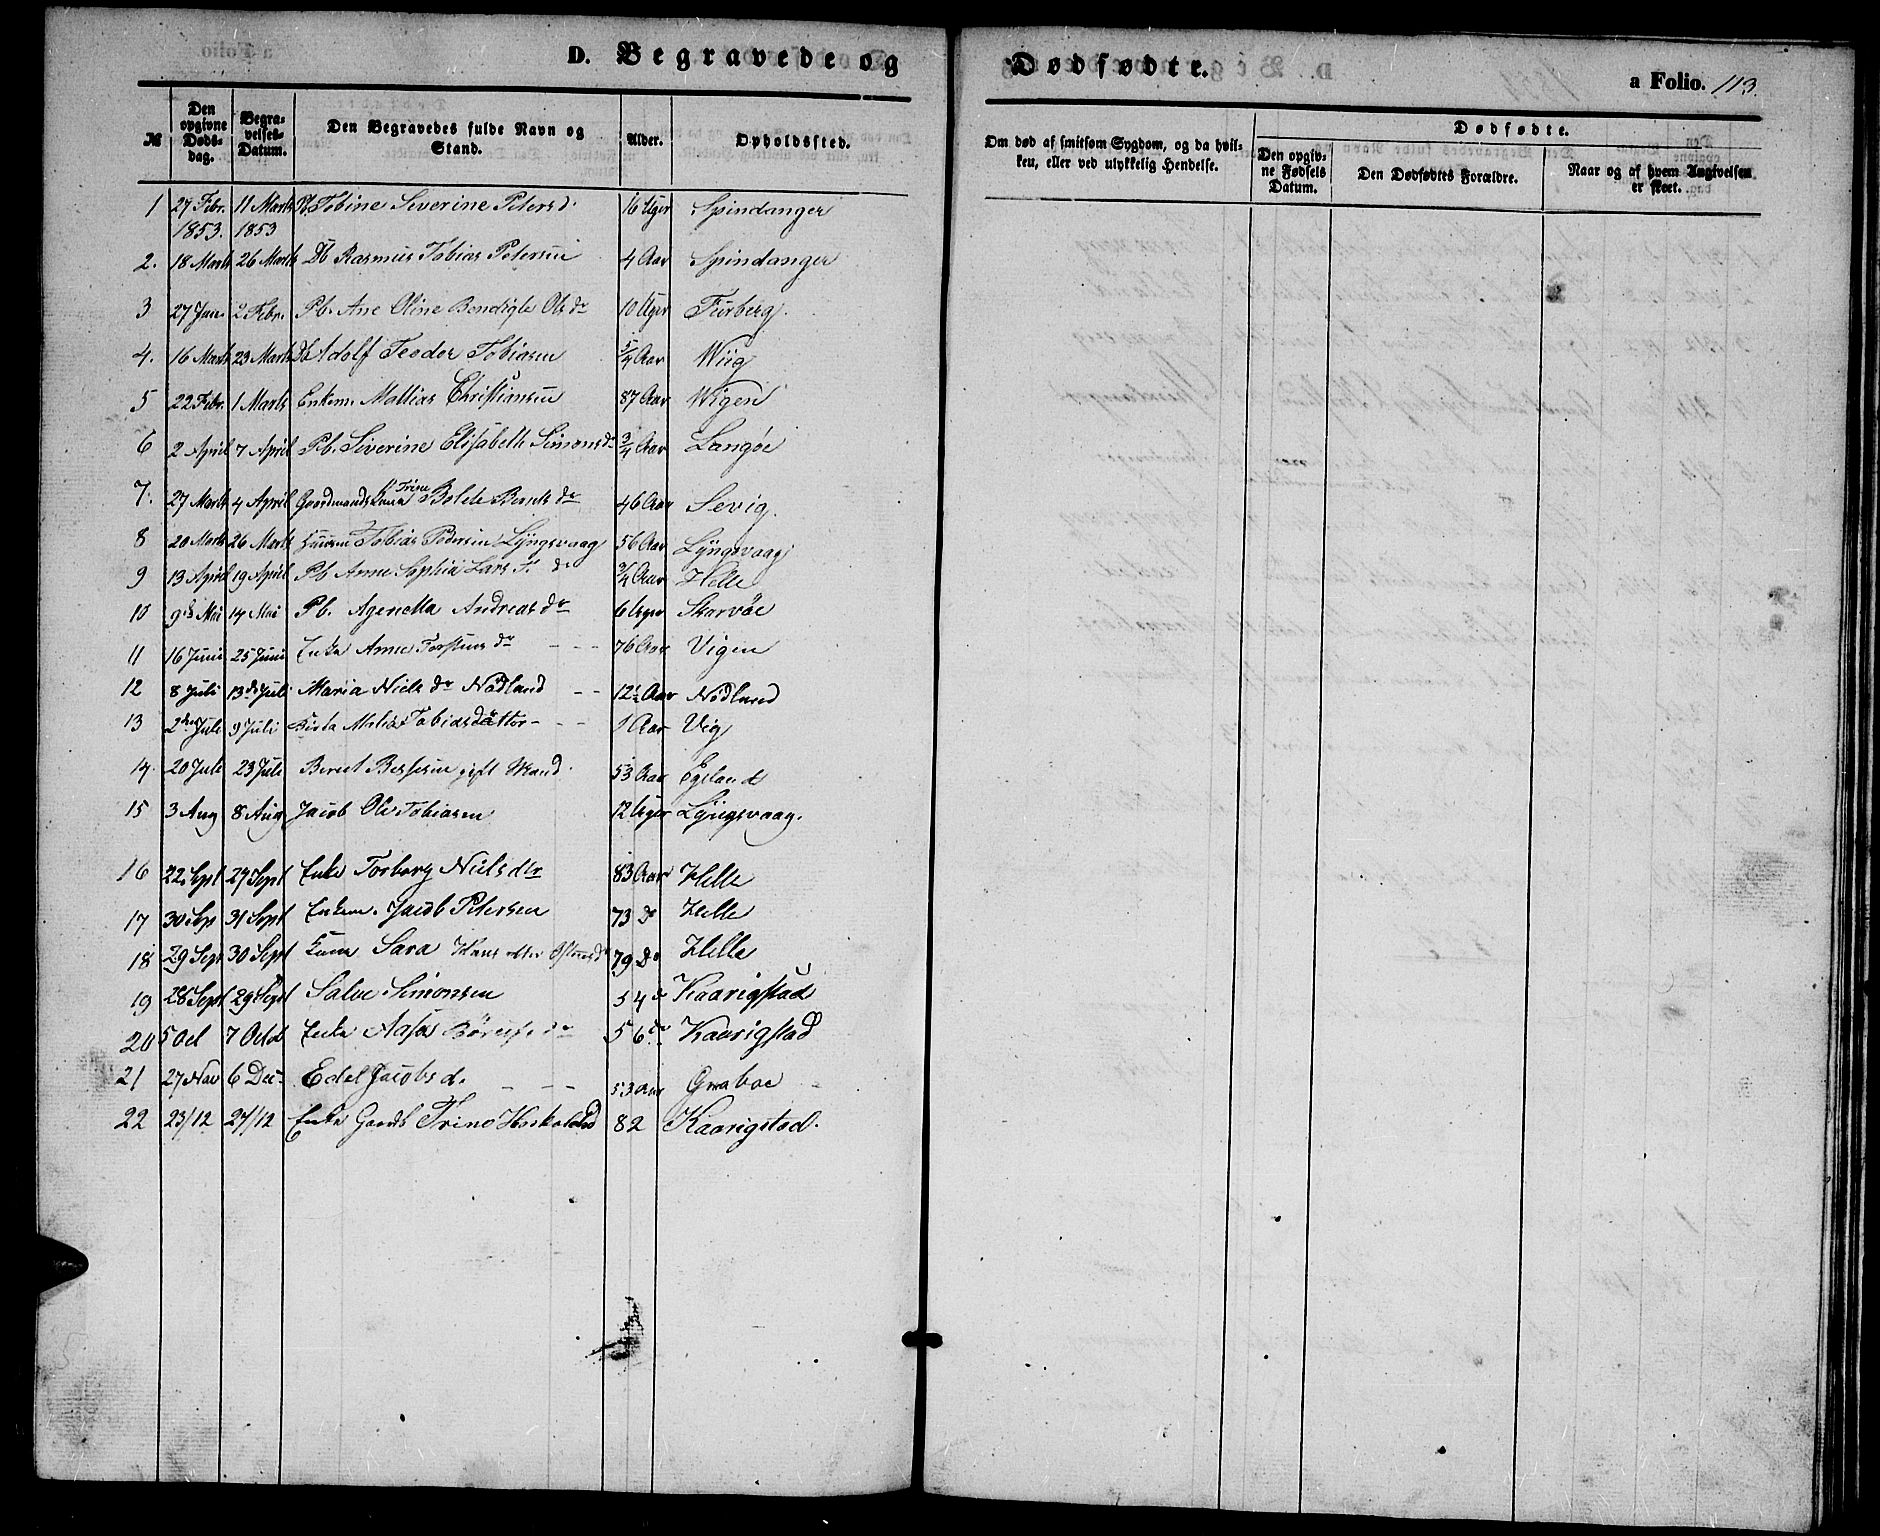 D. Begravede og Dødfødte. a Folio. 113.
№ Den opgivne Døds-dag. Begra-velses-Datum. Den Begravedes fulde Navn og Stand. Alder. Opholdssted. Om død af smitsom Sygdom, og da hvil-ken, eller ved ulykkelig Hendelse. Dødfødte. Den opgiv-ne Fødsels Datum. Den Dødfødtes Forældre. Naar og af hvem Angivelsen er skeet.
1 27 Febr. 1853. 11 Marts 1853 Tobine Severine Petersd. 16 Uger Spindanger
2. 18 Marts 26 Marts Db Rasmus Tobias Petersen 4 Aar Spindanger
3 27 Jan. 2 Febr. Pb. Ane Oline Bendigte Olsdr 10 Uger Furberg.
4. 16 Marts 23 Marts Db Adolf Teodor Tobiasen 5/4 Aar Wiig
5 22 Febr. 1 Marts Enkem. Mathias Christiansen 87 Aar Wigen
6 2 April 7 April Pb. Siverine Elisabeth Simonsdr 3/4 Aar Langöe
7. 27 Marts 4 April Gaardmands Kone Trine Bolde Berntsdr 46 Aar Sevig.
8 20 Marts 26 Marts Tobias Pedersen Lÿngsvaag 56 Aar Lÿngsvaag
9 13 April 19 April Pb Anne Sophia Lars dr 3/4 Aar Helle
10 9de Mai 14 Mai Pb. Agenetta Andreasdr 6 Uger Skarvöe
11 16 Juni 25 Juni Enke Anne Torstens dr - - - 76 Aar Vigen
12 8 Juli 13de Juli Maria Niels dr Nödland - - 12½ Aar Nödland
13 2den Juli 9 Juli Malia Tobiasdatter - - - 1 Aar Vig
14. 20 Juli 23 Juli Berent gift Mand. 53 Aar Egeland
15 3 Aug 8 Aug Jacob Ole Tobiasen 12 Uger Lÿngsvaag.
16 22 Sept 29 Sept Enke Torborg Nielsdtr 83 Aar Helle
17 30 Sep 31 Sept Enkem. Jacob Petersen 73 Do Helle
18 29 Sept 30 Sept Kone Sara 79 Do Helle
19 28 Sept 29 Sept Salve Simonsen 54 do Kaarigstad
20 5 Oct 7 Octob Enke Aasa dr 56 do Kaarigstad
21 27 Nov 6 Dec Edel Jacobsd. - - - 53 Aar Graboe
22 23/12 27/12 Enke Gaards Trine 82 Kaarigstad.